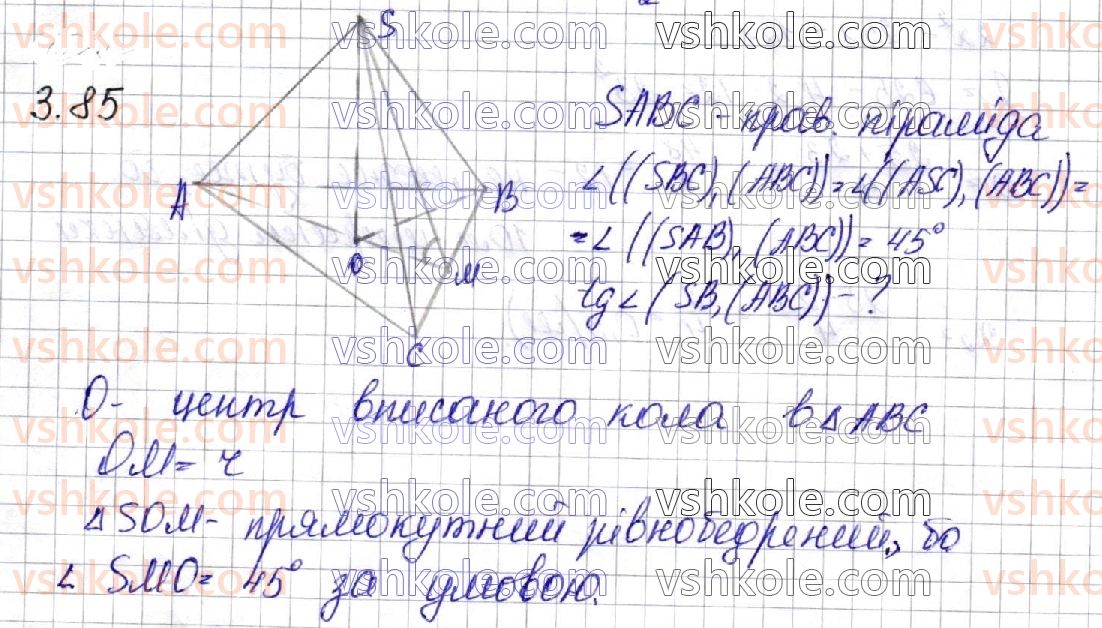 3.85
S
A
B
O
M
C
SABC - прав. піраміда
∠((SBC),(ABC))=∠((ASC),(ABC))=
=∠((SAB),(ABC))=45°
tg∠(SB,(ABC))-?
O- центр вписаного кола в △ABC
OM= r
△SOM- прямокутний рівнобедрений, бо
∠ SMO= 45° за умовою.
vshkole.com